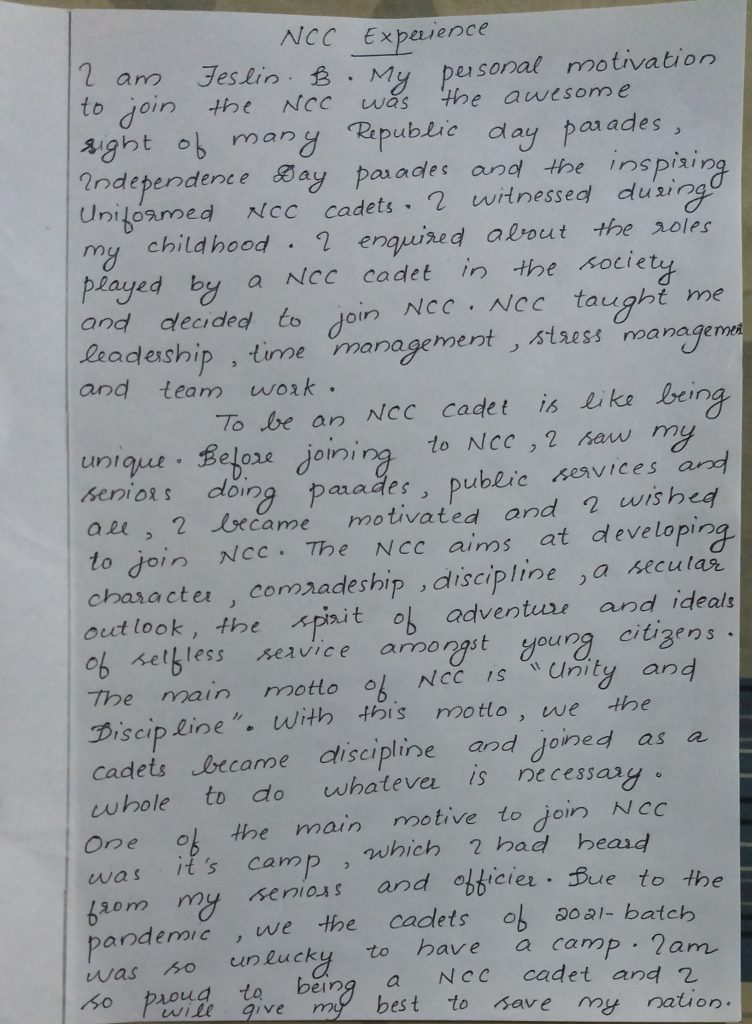 NCC Experience
I am Jeslin. B. My personal motivation
to join the NCC was the awesome
sight of many Republic day parades,
Independence Day parades and the inspiring
Uniformed NCC cadets. I witnessed during
my childhood. I enquired about the roles
played by a NCC cadet in the society
and decided to join NCC. NCC taught me
leadership, time management, stress managemen
and team work.
To be an NCC cadet is like being
unique. Before joining to NCC, I saw my
seniors doing parades, public services and
all, I became motivated and I wished
to join NCC. The NCC aims at developing
character, comradeship, discipline, a secular
outlook, the spirit of adventure and ideals
of selfless service amongst young citizens.
The main motto of NCC is "Unity and
Discipline". With this motto, we the
cadets became discipline and joined as a
whole to do whatever is necessary.
One of the main motive to join NCC
was it's camp, which I had heard
from my seniors and officier. Due to the
pandemic, we the cadets of 2021-batch
was so unlucky to have a camp. I am
so proud to being a NCC cadet and I
will give my best to save my nation.